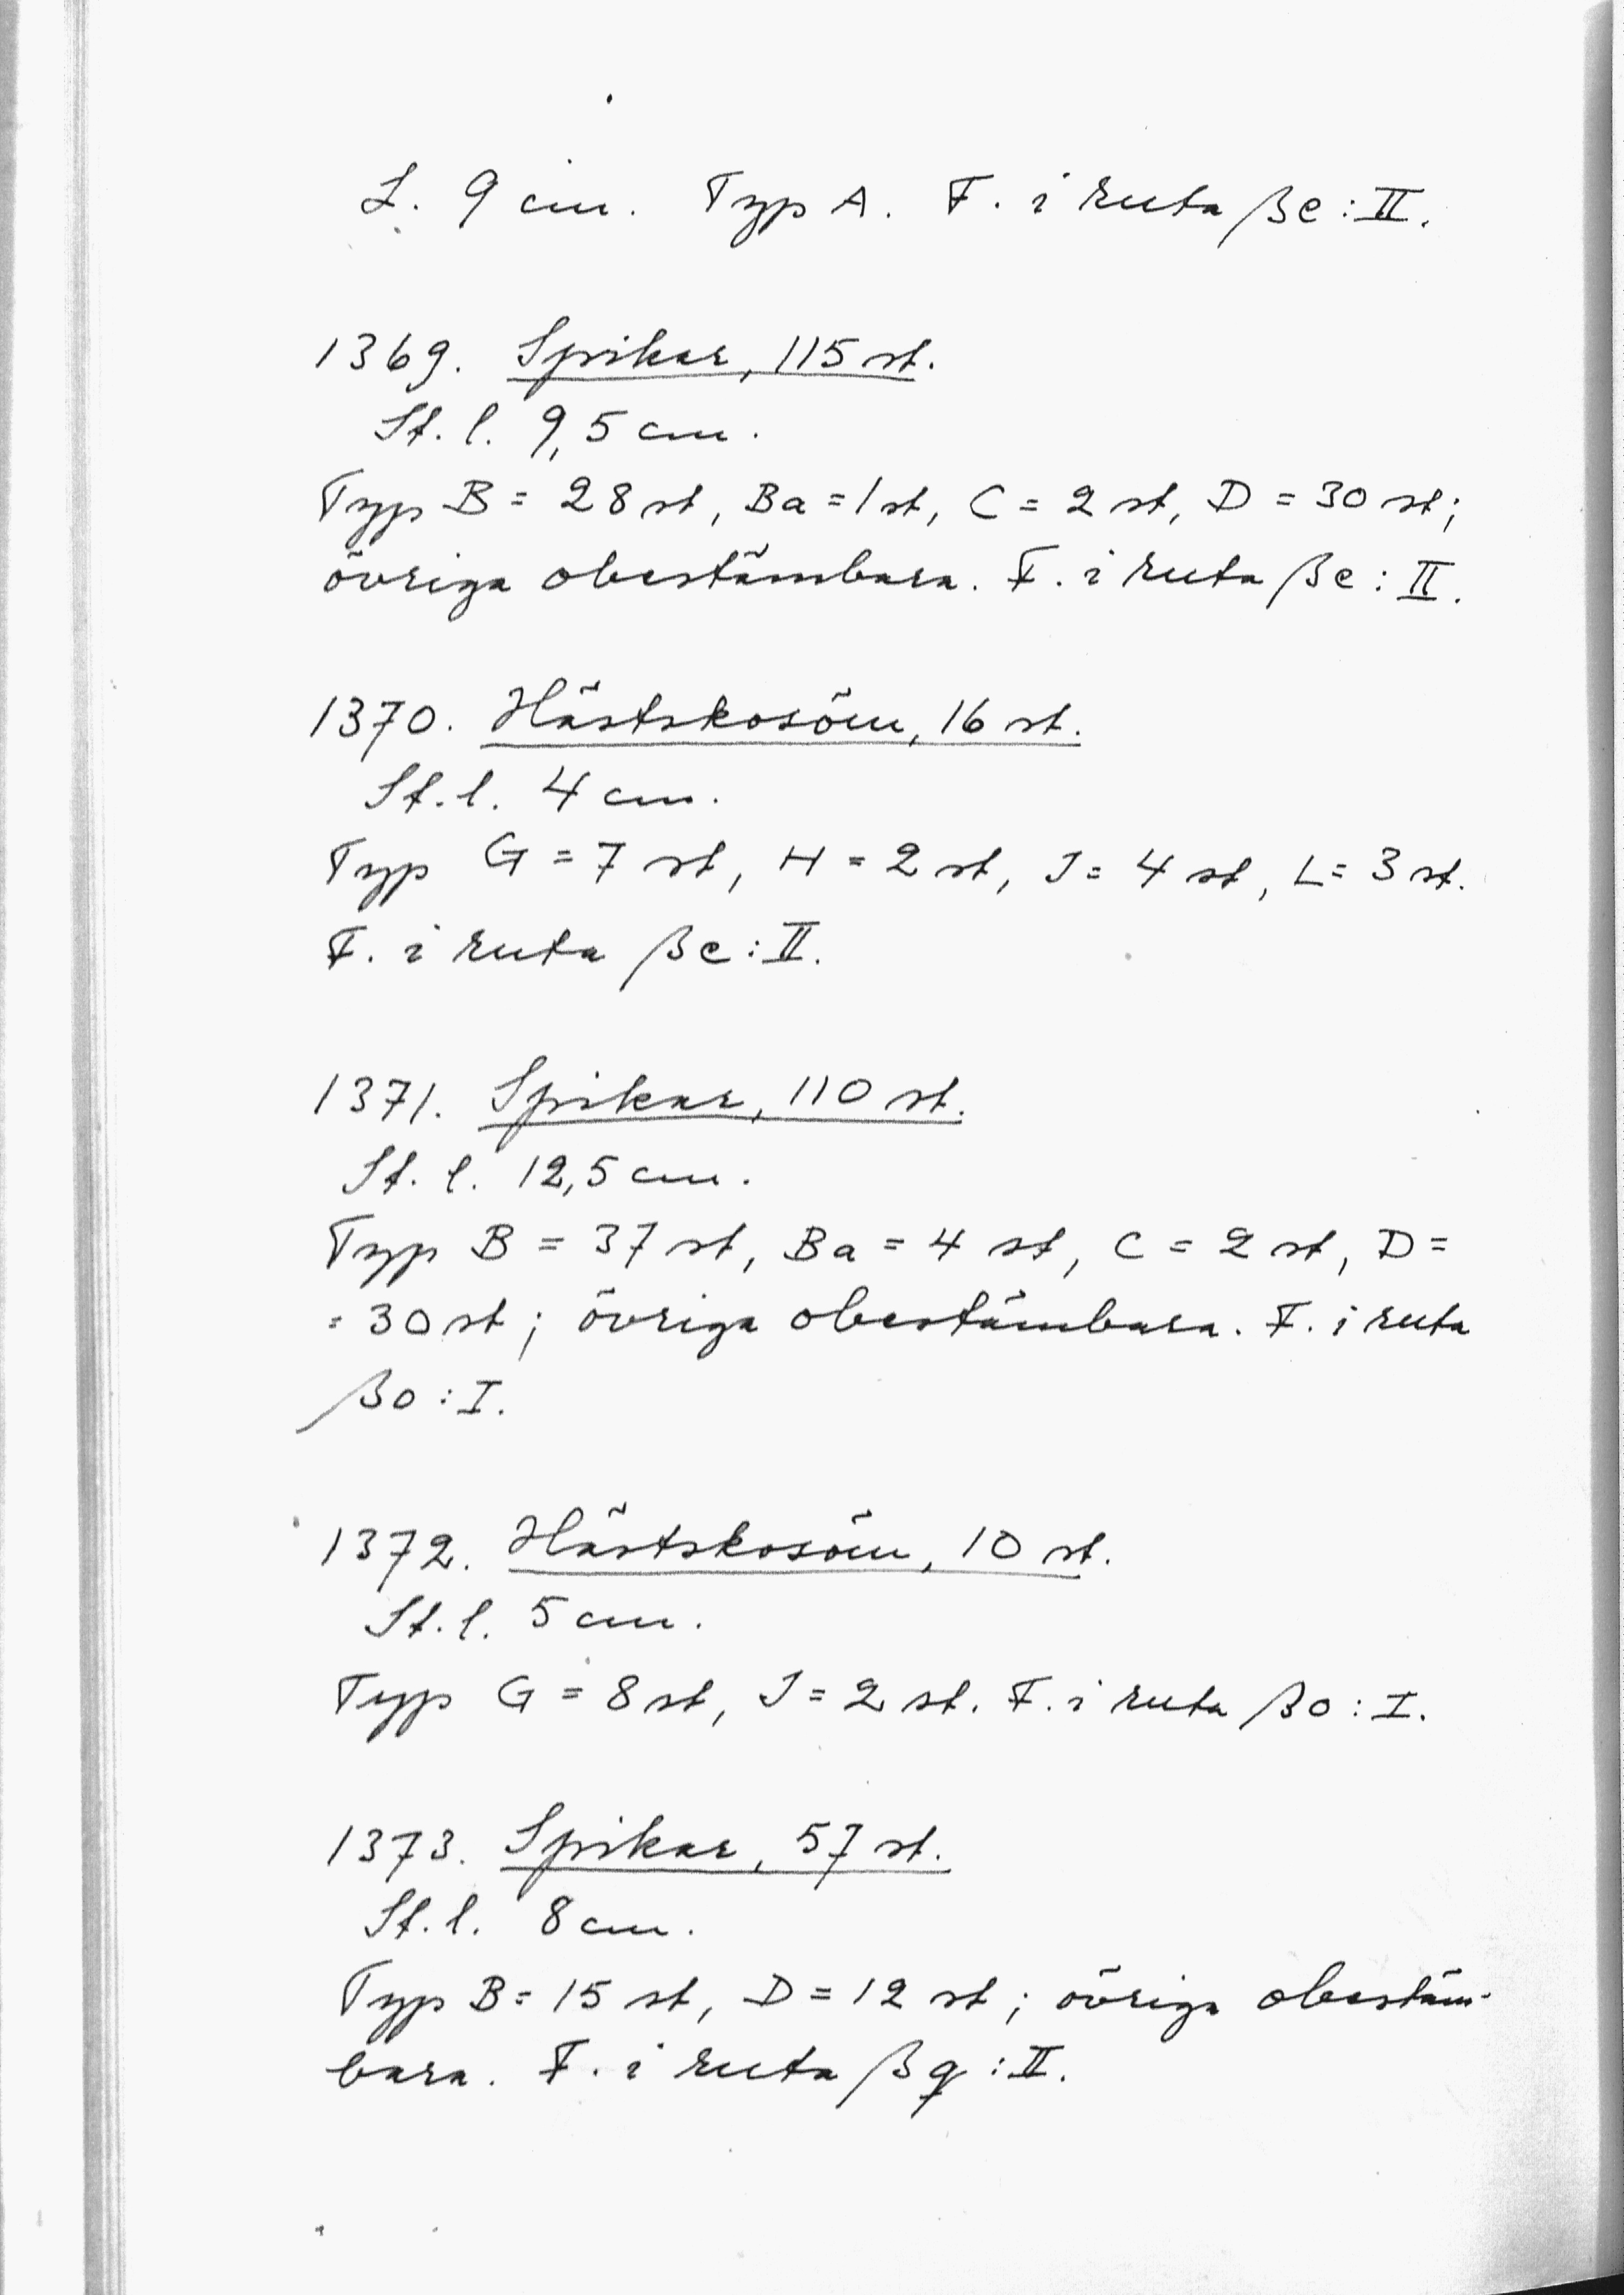 L. 9 cm. Typ A. F. i ruta βe:II.
1369. Spikar, 115 st.
St. l. 9,5 cm.
Typ B = 28 st, Ba = 1 st, C = 2 st, D = 30 st;
övriga obestämbara. F. i ruta βe:II.
1370. Hästskosöm, 16 st.
St. l. 4 cm.
Typ G = 7 st, H = 2 st, J = 4 st, L = 3 st.
F. i ruta βe:II.
1371. Spikar, 110 st.
St. l. 12,5 cm.
Typ B = 37 st, Ba = 4 st, C = 2 st, D =
= 30 st; övriga obestämbara. F. i ruta
βo:I.
1372. Hästskosöm, 10 st.
St. l. 5 cm.
Typ G = 8 st, J = 2 st. F. i ruta βo:I.
1373. Spikar, 57 st.
St. l. 8 cm.
Typ B = 15 st, D = 12 st; övriga obestäm-
bara. F. i ruta βq:II.